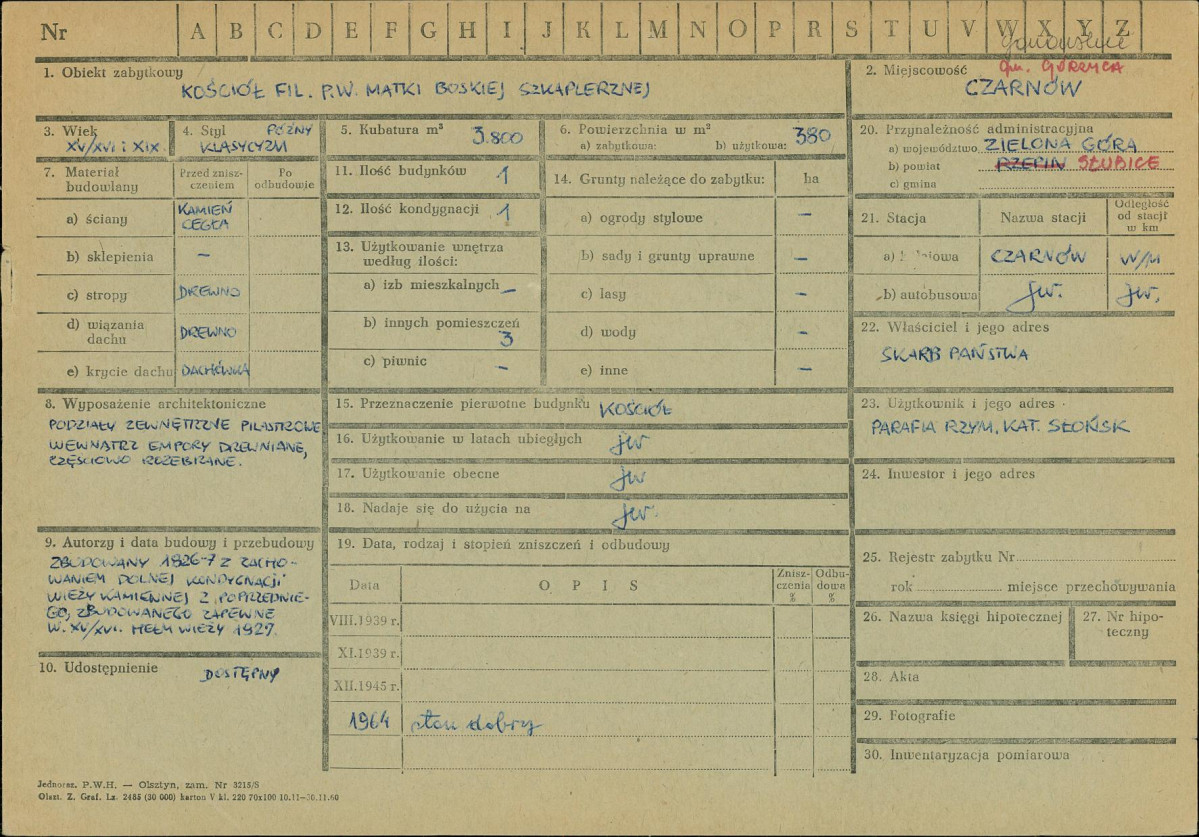 Nr A B C D E F G H I J K L M N O P R S T U V W X Y Z
1. Obiekt zabytkowy
KOŚCIÓŁ FIL. P.W. MATKI BOSKIEJ SZKAPLERZNEJ
2. Miejscowość gm. GÓRZYCA
CZARNÓW
3. Wiek
XV/XVI i XIX
4. Styl PÓŹNY
KLASYCYZM
5. Kubatura m³ 3.800
6. Powierzchnia w m²
a) zabytkowa: b) użytkowa: 380
7. Materiał budowlany
Przed zniszczeniem
Po odbudowie
a) ściany KAMIEŃ
CEGŁA
b) sklepienia –
c) stropy DREWNO
d) wiązania
dachu DREWNO
e) krycie dachu DACHÓWKA
8. Wyposażenie architektoniczne
PODZIAŁY ZEWNĘTRZNE PILASTROWE
WEWNĄTRZ EMPORY DREWNIANE,
CZĘŚCIOWO ROZEBRANE.
9. Autorzy i data budowy i przebudowy
ZBUDOWANY 1826-7 Z ZACHO-
WANIEM DOLNEJ KONDYGNACJI
WIEŻY KAMIENNEJ Z POPRZEDNIE-
GO, ZBUDOWANEGO ZAPEWNE
W. XV/XVI. HEŁM WIEŻY 1927.
10. Udostępnienie DOSTĘPNY
11. Ilość budynków 1
12. Ilość kondygnacji 1
13. Użytkowanie wnętrza
według ilości:
a) izb mieszkalnych –
b) innych pomieszczeń
3
c) piwnic –
14. Grunty należące do zabytku: ha
a) ogrody stylowe –
b) sady i grunty uprawne –
c) lasy –
d) wody –
e) inne –
15. Przeznaczenie pierwotne budynku KOŚCIÓŁ
16. Użytkowanie w latach ubiegłych jw
17. Użytkowanie obecne jw
18. Nadaje się do użycia na jw.
19. Data, rodzaj i stopień zniszczeń i odbudowy
Data OPIS Zniszczenia % Odbudowa %
VIII.1939 r.
XI.1939 r.
XII.1945 r.
1964 stan dobry
20. Przynależność administracyjna
a) województwo ZIELONA GÓRA
b) powiat RZEPIN SŁUBICE
c) gmina
21. Stacja Nazwa stacji Odległość
od stacji
w km
CZARNÓW W/M
b) autobusowa jw. jw.
22. Właściciel i jego adres
SKARB PAŃSTWA
23. Użytkownik i jego adres
PARAFIA RZYM. KAT. SŁOŃSK
24. Inwestor i jego adres
25. Rejestr zabytku Nr
rok miejsce przechowywania
26. Nazwa księgi hipotecznej
27. Nr hipo-
teczny
28. Akta
29. Fotografie
30. Inwentaryzacja pomiarowa
Jednorаz. P.W.H. — Olsztyn, zam. Nr 3215/S
Olszt. Z. Graf. Lz. 2485 (30 000) karton V kl. 220 70x100 10.11—30.11.60